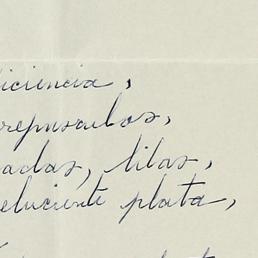 iciencia,
repusculos,
adas, lilas,
eluciente plata,